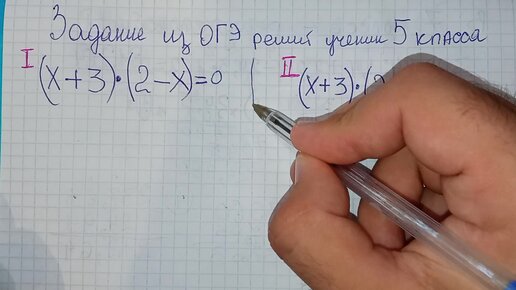 Задание из ОГЭ решит ученик 5 класса
I (x+3)·(2-x)=0
II (x+3)·(2